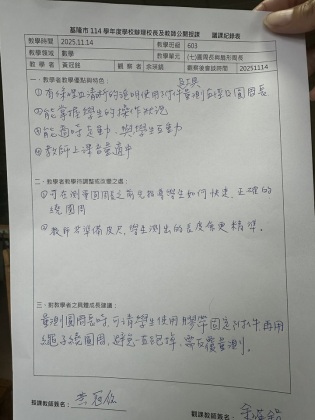 基隆市 114 學年度學校辦理校長及教師公開授課 議課紀錄表
教學時間 2025.11.14 教學班級 603
教學領域 數學 教學單元 (七)圓周長與扇形周長
教學者 黃冠銘 觀察者 余瑛毓 觀察後會談時間 20251114
一、教學者教學優點與特色：
①有條理且清晰的說明使用附件量測直徑及圓周長
②能掌握學生的操作狀況
③能適時走動，與學生互動
④教師上課音量適中
二、教學者教學待調整或改變之處：
①可在測量圓周長之前先指導學生如何快速、正確的
繞圓周
②教師若準備皮尺，學生測出的長度會更精準。
三、對教學者之具體成長建議：
量測圓周長時，可請學生使用膠帶固定附件再用
繩子繞圓周，避免一直鬆掉，需反覆量測。
授課教師簽名：
觀課教師簽名：